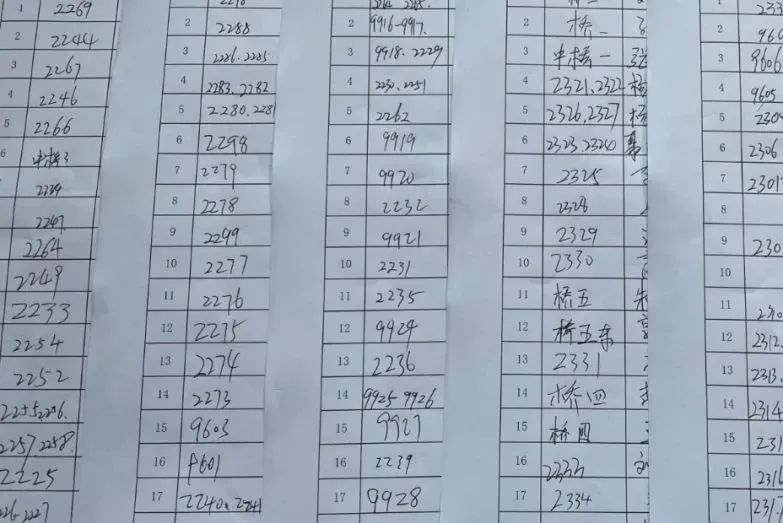 1 2269
2 2244
3 2267
4 2246
5 2266
6 中桥3
2239
2247
2264
2249
2233
2254
2252
2255 2256.
2257 2258.
2225
2226-2227
2 2288
3 2286.2285
4 2283.2282
5 2280.2281
6 2298
7 2279
8 2278
9 2299
10 2277
11 2276
12 2275
13 2274
14 2273
15 9603
16 9601
17 2240.2241
2 9916-9917.
3 9918.2229
4 2230.2251
5 2262
6 9919
7 9920
8 2232
9 9921
10 2231
11 2235
12 9924
13 2236
14 9925 9926
15 9927
16 2239
17 9928
2 桥一
3 中桥一 张
4 2321.2322 杨
5 2326.2327 杨
6 2323.2320
7 2325
8 2328
9 2329
10 2330
11 桥五 朱
12 桥五东
13 2331
14 桥四
15 桥四
16 2333
17 2334
1 233
2 960
3 9606
4 9605
5 2304
6 2306
7 2301
8
9 230
10
11 230
12 2312.
13 2313.
14 2314
15 231
16 2316
17 231